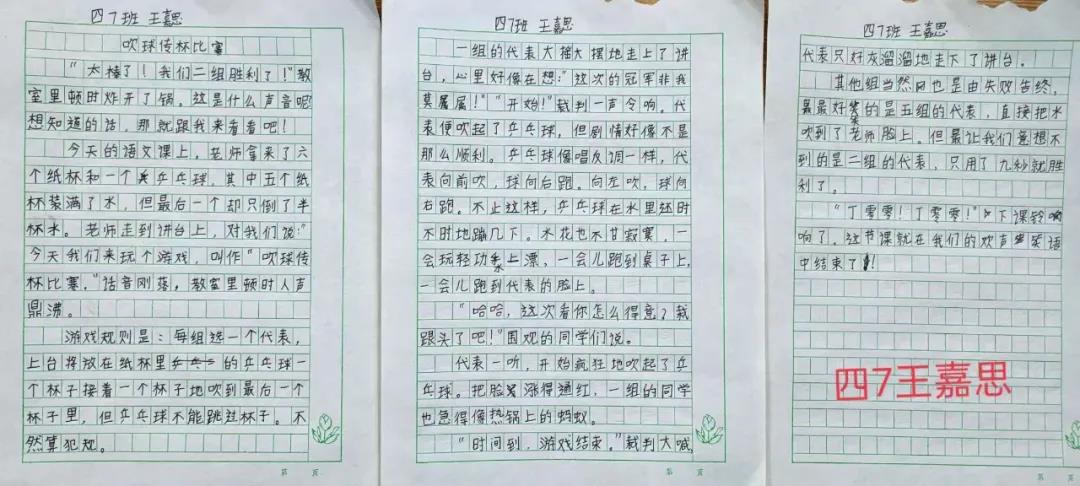 四7班 王嘉思
吹球传杯比赛
“太棒了！我们二组胜利了！”教
室里顿时炸开了锅。这是什么声音呢？
想知道的话，那就跟我来看看吧！
今天的语文课上，老师拿来了六
个纸杯和一个乒乓球。其中五个纸
杯装满了水，但最后一个却只倒了半
杯水。老师走到讲台上，对我们说：“
今天我们来玩个游戏，叫作“吹球传
杯比赛。”话音刚落，教室里顿时人声
鼎沸。
游戏规则是：每组选一个代表，
上台将放在纸杯里的乒乓球一
个杯子接着一个杯子地吹到最后一个
杯子里，但乒乓球不能跳过杯子。不
然算犯规。
第 页
四7班 王嘉思
一组的代表大摇大摆地走上了讲
台，心里好像在想：“这次的冠军非我
莫属！”“开始！”裁判一声令响。代
表便吹起了乒乓球，但剧情好像不是
那么顺利。乒乓球像唱反调一样，代
表向前吹，球向后跑。向左吹，球向
右跑。不止这样，乒乓球在水里还时
不时地蹦几下。水花也不甘寂寞，一
会玩轻功水上漂，一会儿跑到桌子上，
一会儿跑到代表的脸上。
“哈哈，这次看你怎么得意？栽
跟头了吧！”围观的同学们说。
代表一听，开始疯狂地吹起了乒
乓球。把脸涨得通红，一组的同学
也急得像热锅上的蚂蚁。
“时间到，游戏结束。”裁判大喊，
第 页
四7班 王嘉思
代表只好灰溜溜地走下了讲台。
其他组当然也是由失败告终，
最最好笑的是五组的代表，直接把水
吹到了老师脸上。但最让我们意想不
到的是二组的代表，只用了九秒就胜
利了。
“丁零零！丁零零！”下课铃
响了，这节课就在我们的欢声笑语
中结束了！
四7王嘉思
第 页